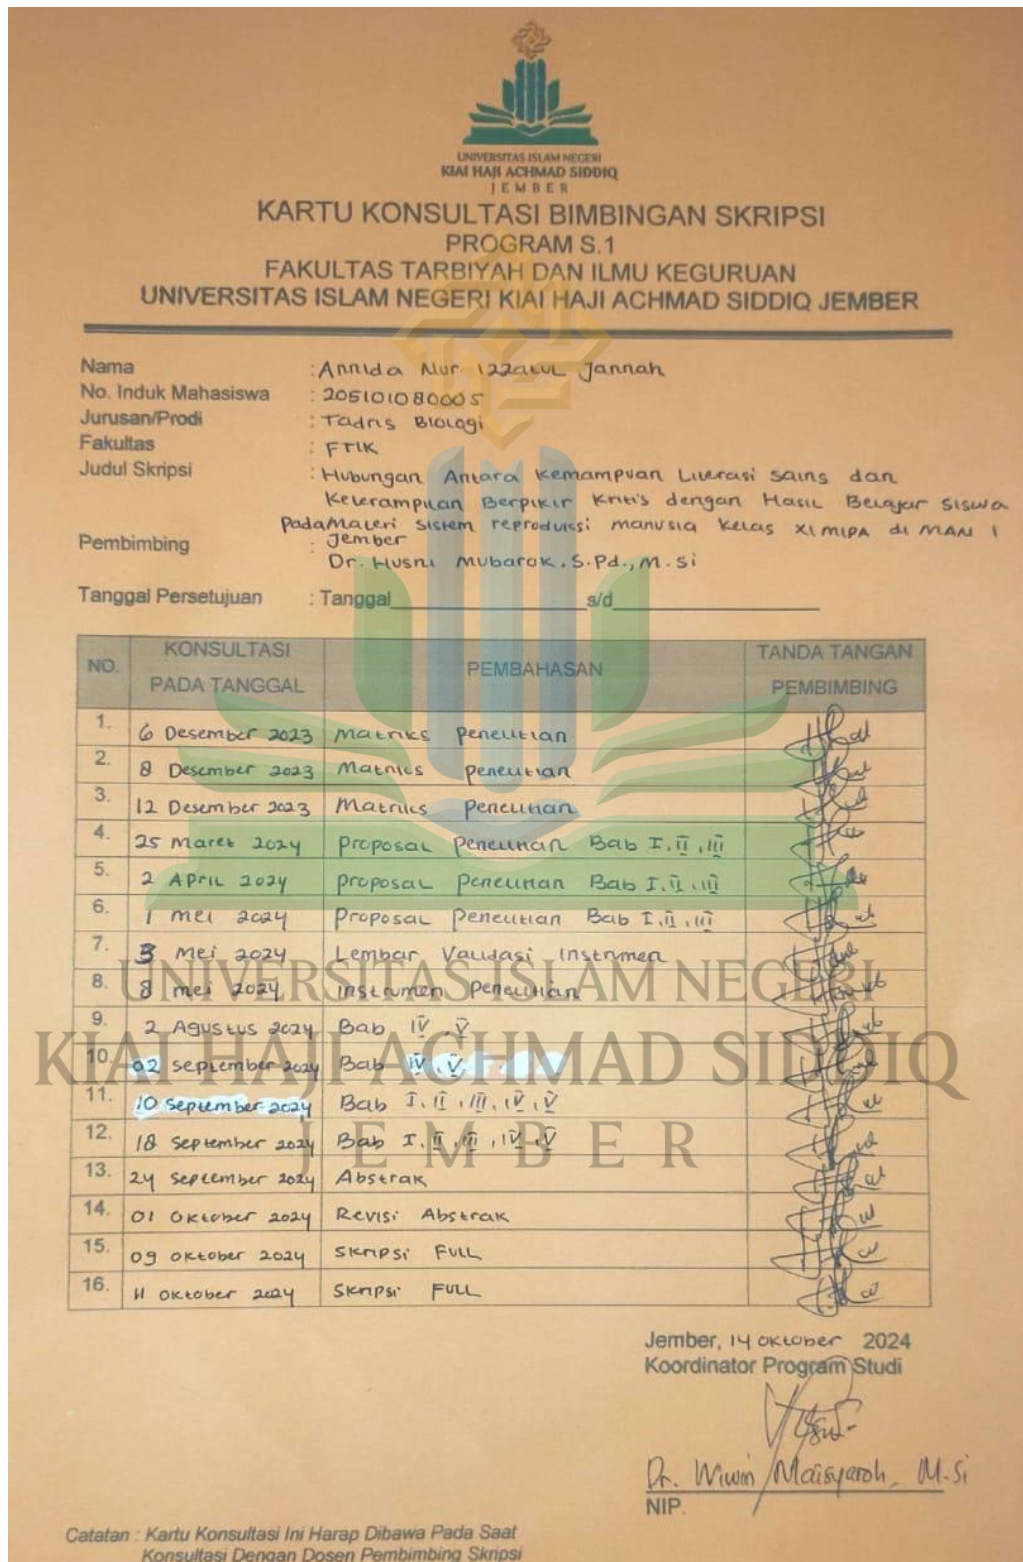 UNIVERSITAS ISLAM NEGERI
KIAI HAJI ACHMAD SIDDIQ
JEMBER
KARTU KONSULTASI BIMBINGAN SKRIPSI
PROGRAM S.1
FAKULTAS TARBIYAH DAN ILMU KEGURUAN
UNIVERSITAS ISLAM NEGERI KIAI HAJI ACHMAD SIDDIQ JEMBER
Nama : Annida Nur Izzatul Jannah
No. Induk Mahasiswa : 205101080005
Jurusan/Prodi : Tadris Biologi
Fakultas : FTIK
Judul Skripsi : Hubungan Antara Kemampuan Literasi Sains dan
Keterampilan Berpikir Kritis dengan Hasil Belajar Siswa
Pada Materi Sistem reproduksi manusia Kelas XI MIPA di MAN 1
Jember
Pembimbing : Dr. Husni Mubarok, S.Pd., M.Si
Tanggal Persetujuan : Tanggal s/d
NO. KONSULTASI PADA TANGGAL PEMBAHASAN TANDA TANGAN PEMBIMBING
1. 6 Desember 2023 Matriks Penelitian
2. 8 Desember 2023 Matriks Penelitian
3. 12 Desember 2023 Matriks Penelitian
4. 25 Maret 2024 Proposal Penelitian Bab I, II, III
5. 2 April 2024 Proposal Penelitian Bab I, II, III
6. 1 Mei 2024 Proposal Penelitian Bab I, II, III
7. 3 Mei 2024 Lembar Validasi Instrumen
8. 8 Mei 2024 Instrumen Penelitian
9. 2 Agustus 2024 Bab IV, V
10. 02 September 2024 Bab IV, V
11. 10 September 2024 Bab I, II, III, IV, V
12. 18 September 2024 Bab I, II, III, IV, V
13. 24 September 2024 Abstrak
14. 01 Oktober 2024 Revisi Abstrak
15. 09 Oktober 2024 Skripsi FULL
16. 11 Oktober 2024 Skripsi FULL
UNIVERSITAS ISLAM NEGERI
KIAI HAJI ACHMAD SIDDIQ
JEMBER
Jember, 14 Oktober 2024
Koordinator Program Studi
Dr. Wiwin Maisyaroh, M.Si
NIP.
Catatan : Kartu Konsultasi Ini Harap Dibawa Pada Saat
Konsultasi Dengan Dosen Pembimbing Skripsi